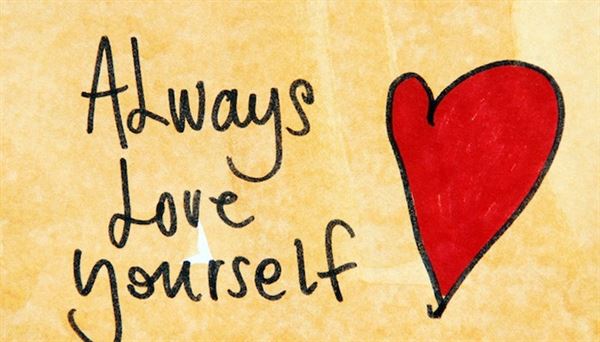 Always
Love
yourself